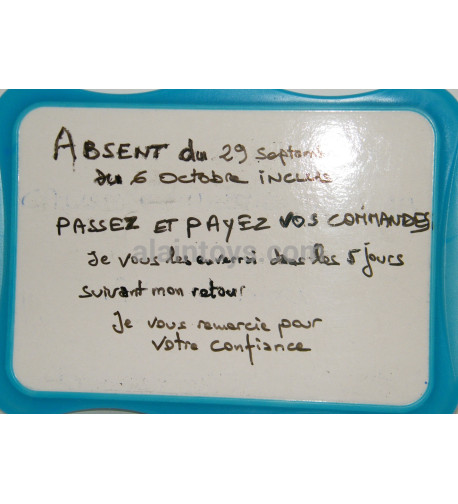 ABSENT du 29 Septembre
au 6 Octobre INCLUS
PASSEZ ET PAYEZ VOS COMMANDES
alaintoys.com
Je vous les enverrai dans les 5 jours
suivant mon retour
Je vous remercie pour
votre confiance